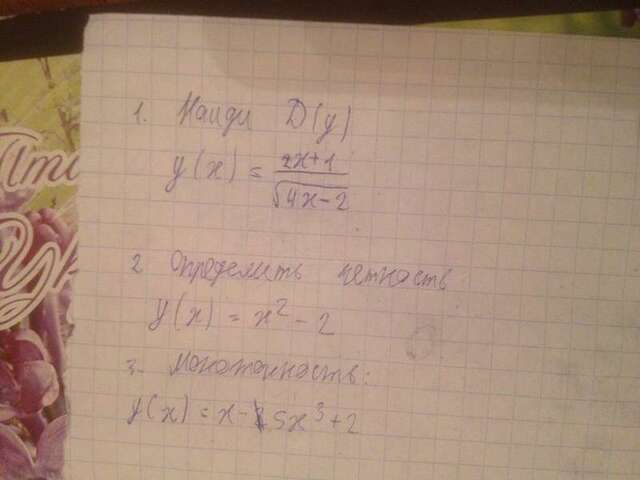 1. Найди D(y)
y(x) = \frac{2x+1}{\sqrt{4x-2}}
2 Определить четность
y(x) = x² - 2
3. Монотонность:
y(x) = x - 5x³ + 2